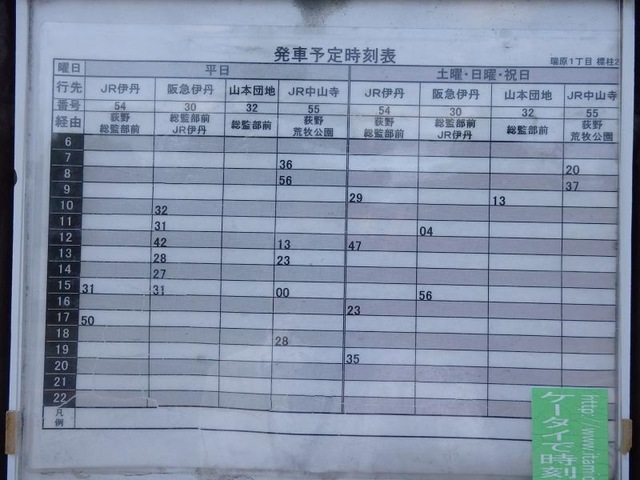 発車予定時刻表
瑞原1丁目 標柱2
曜日 平日 土曜・日曜・祝日
行先 JR伊丹 阪急伊丹 山本団地 JR中山寺 JR伊丹 阪急伊丹 山本団地 JR中山寺
番号 54 30 32 55 54 30 32 55
経由 荻野 総監部前 総監部前 JR伊丹 総監部前 荻野 荒牧公園 荻野 総監部前 総監部前 JR伊丹 総監部前 荻野 荒牧公園
6
7 36 20
8 56 37
9 29 13
10 32
11 31 04
12 42 13 47
13 28 23
14 27
15 31 31 00 56
16 23
17 50
18 28
19 35
20
21
22
凡例
http://www.itami.c
ケータイで時刻